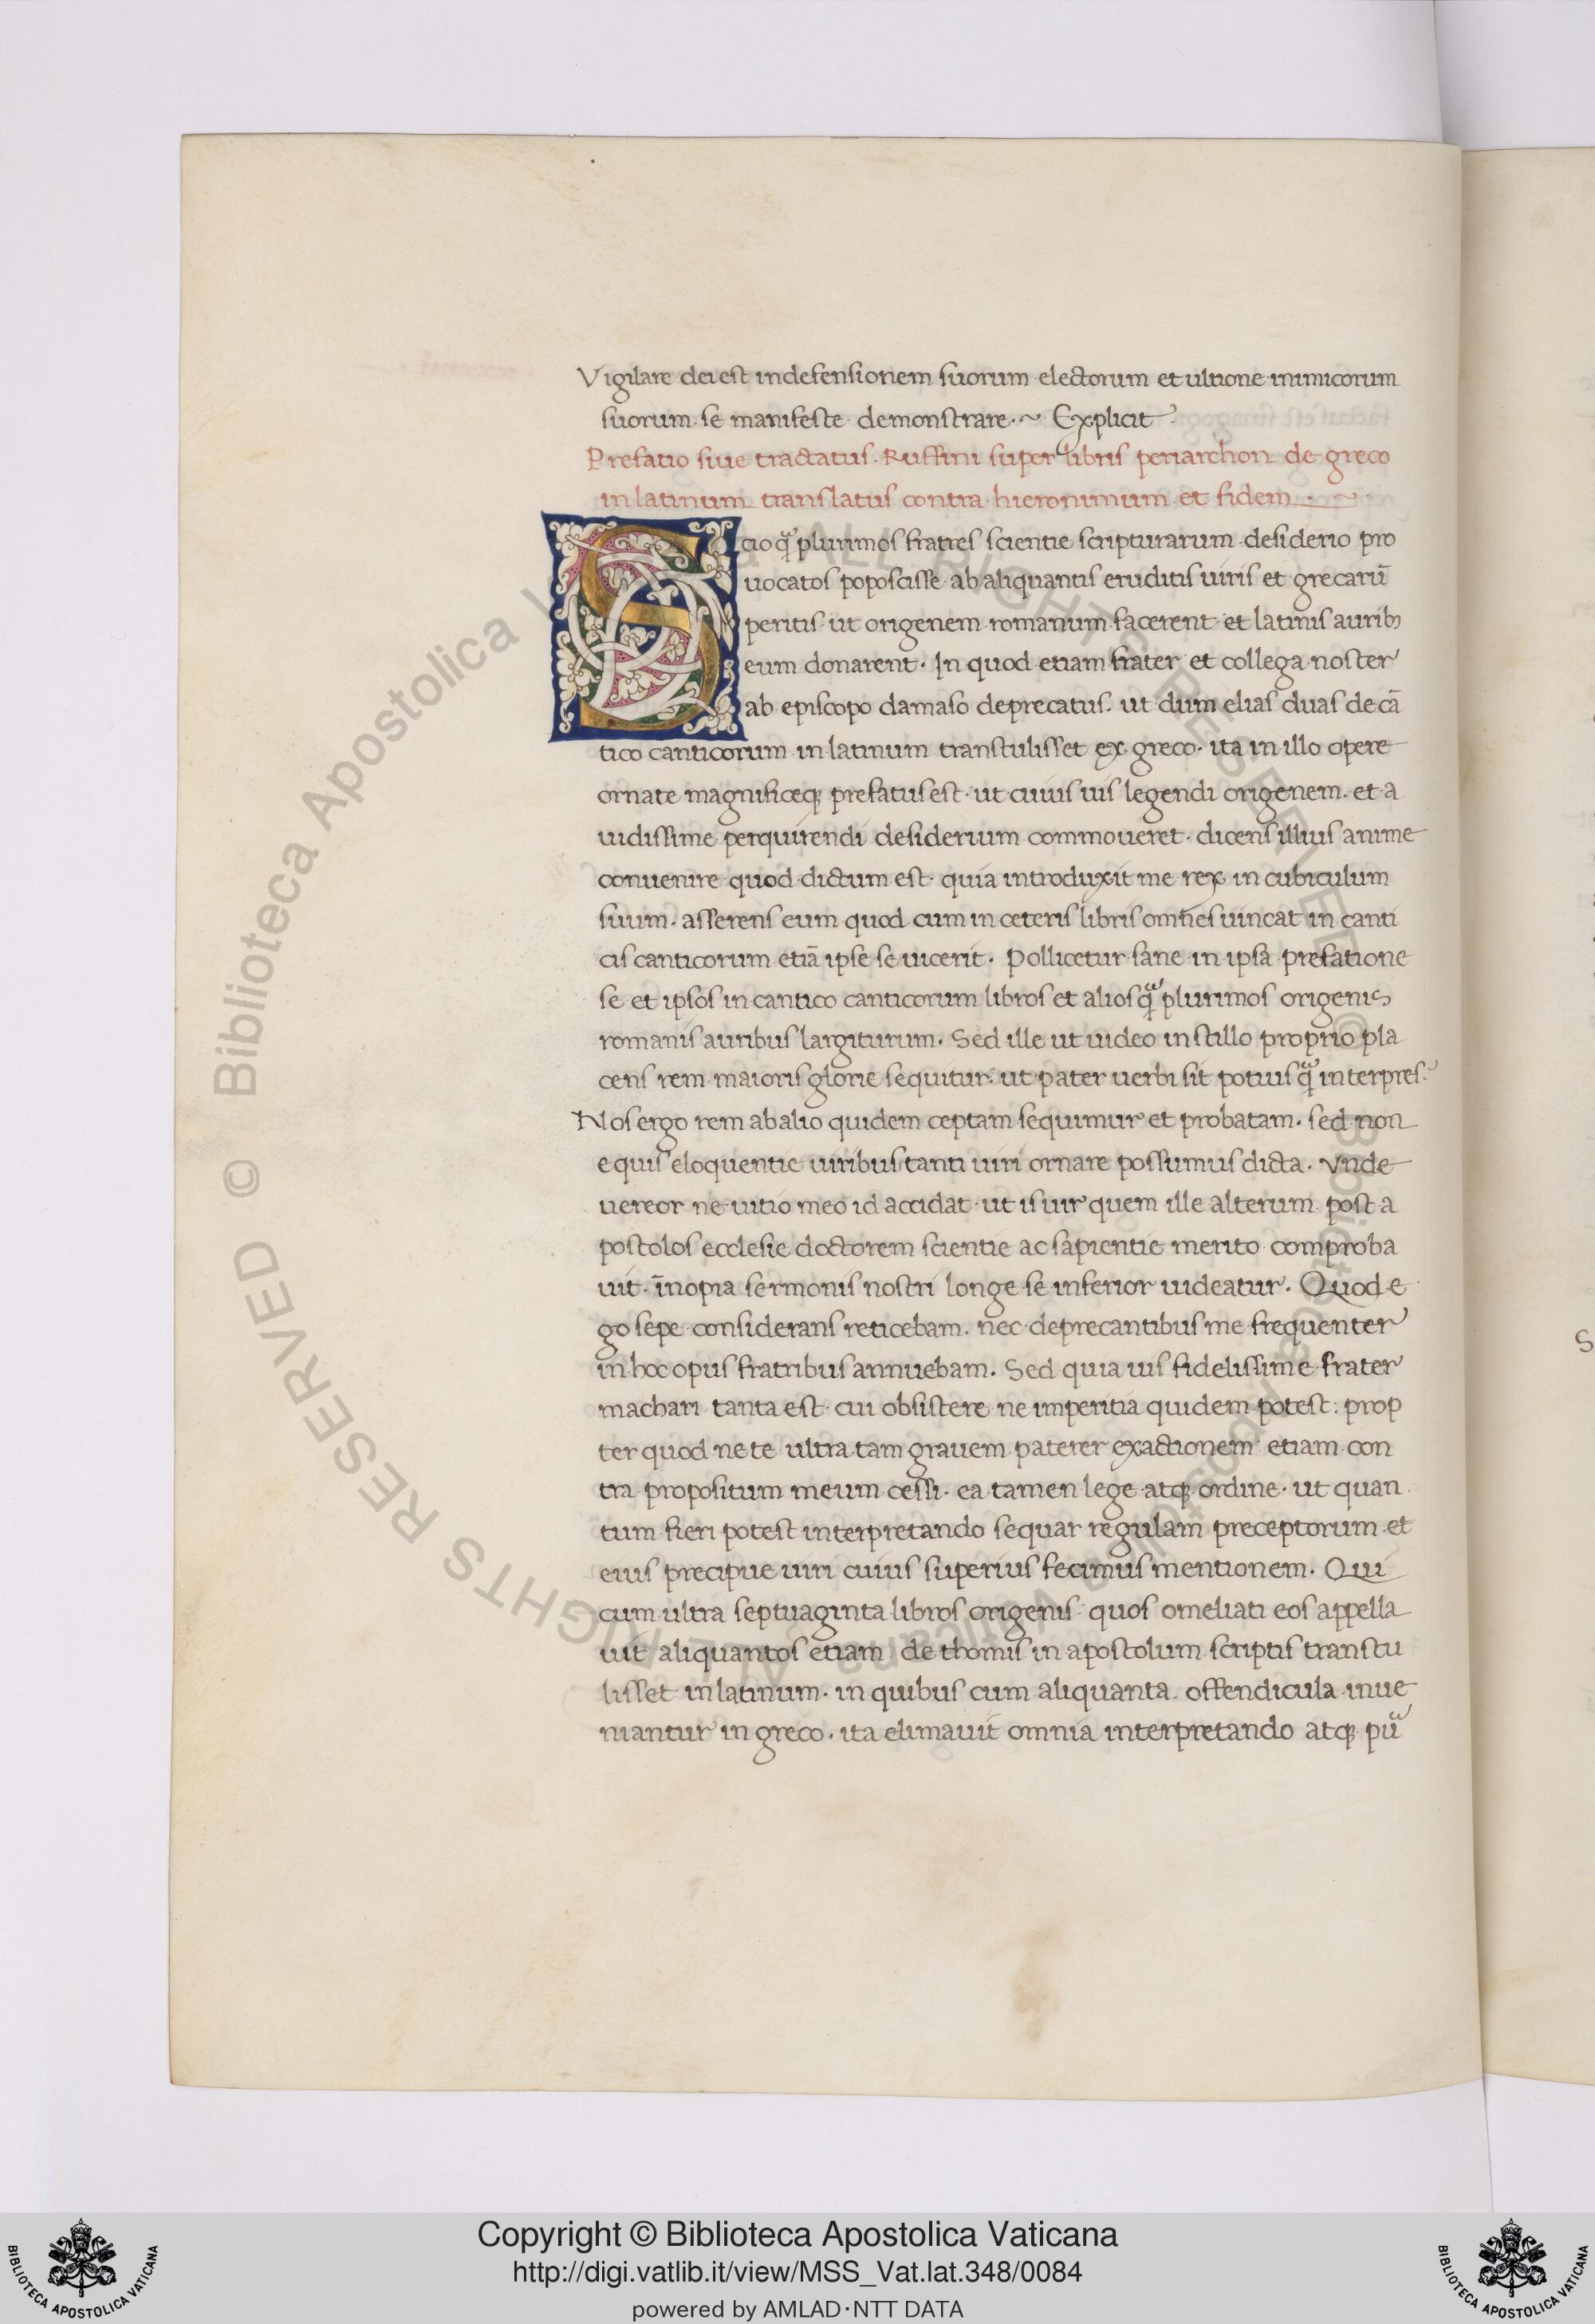 Vigilare dei est in defensionem suorum electorum et ultione inimicorum
suorum se manifeste demonstrare. ~ Explicit
Prefatio siue tractatus. Ruffini super libris periarchon de greco
in latinum translatus contra hieronimum et fidem. ~
Scio qᷓ plurimos fratres scientie scripturarum desiderio pro
uocatos poposcisse ab aliquantis eruditis uiris et grecarū
peritis ut origenem romanum facerent et latinis aurib;
eum donarent. In quod etiam frater et collega noster
ab episcopo damaso deprecatus. ut dum elias duas de cā
tico canticorum in latinum transtulisset ex greco. ita in illo opere
ornate magnificeq; prefatus est. ut cuiuis uis legendi origenem. et a
uidissime perquirendi desiderium commoueret. dicens illius anime
conuenire quod dictum est. quia introduxit me rex in cubiculum
suum. asserens eum quod cum in ceteris libris omnes uincat in canti
cis canticorum etiā ipse se uicerit. Pollicetur sane in ipsa prefatione
se et ipsos in cantico canticorum libros et alios qᷓ plurimos origenis
romanis auribus largiturum. Sed ille ut uideo in stillo proprio pla
cens rem maioris glorie sequitur. ut pater uerbi sit potius qᷓ interpres.
Nos ergo rem ab alio quidem ceptam sequimur et probatam. sed non
equis eloquentie uiribus tanti uiri ornare possumus dicta. Vnde
uereor ne uitio meo id accidat. ut is uir quem ille alterum post a
postolos ecclesie doctorem scientie ac sapientie merito comproba
uit. īnopia sermonis nostri longe se inferior uideatur. Quod e
go sepe considerans reticebam. nec deprecantibus me frequenter
in hoc opus fratribus annuebam. Sed quia uis fidelissime frater
machari tanta est. cui obsistere ne imperitia quidem potest: prop
ter quod ne te ultra tam grauem paterer exactionem etiam con
tra propositum meum cessi. ea tamen lege atq; ordine. ut quan
tum fieri potest interpretando sequar regulam preceptorum et
eius precipue uiri cuius superius fecimus mentionem. Qui
cum ultra septuaginta libros origenis quos omeliati eos appella
uit aliquantos etiam de thomis in apostolum scriptis transtu
lisset in latinum. in quibus cum aliquanta offendicula inue
niantur in greco. ita elimauit omnia interpretando atq; puᷓ
© Biblioteca Apostolica ALL RIGHTS RESERVED © Biblioteca Apostolica Vaticana ALL RIGHTS RESERVED
Copyright © Biblioteca Apostolica Vaticana
http://digi.vatlib.it/view/MSS_Vat.lat.348/0084
powered by AMLAD·NTT DATA
BIBLIOTECA APOSTOLICA VATICANA
BIBLIOTECA APOSTOLICA VATICANA